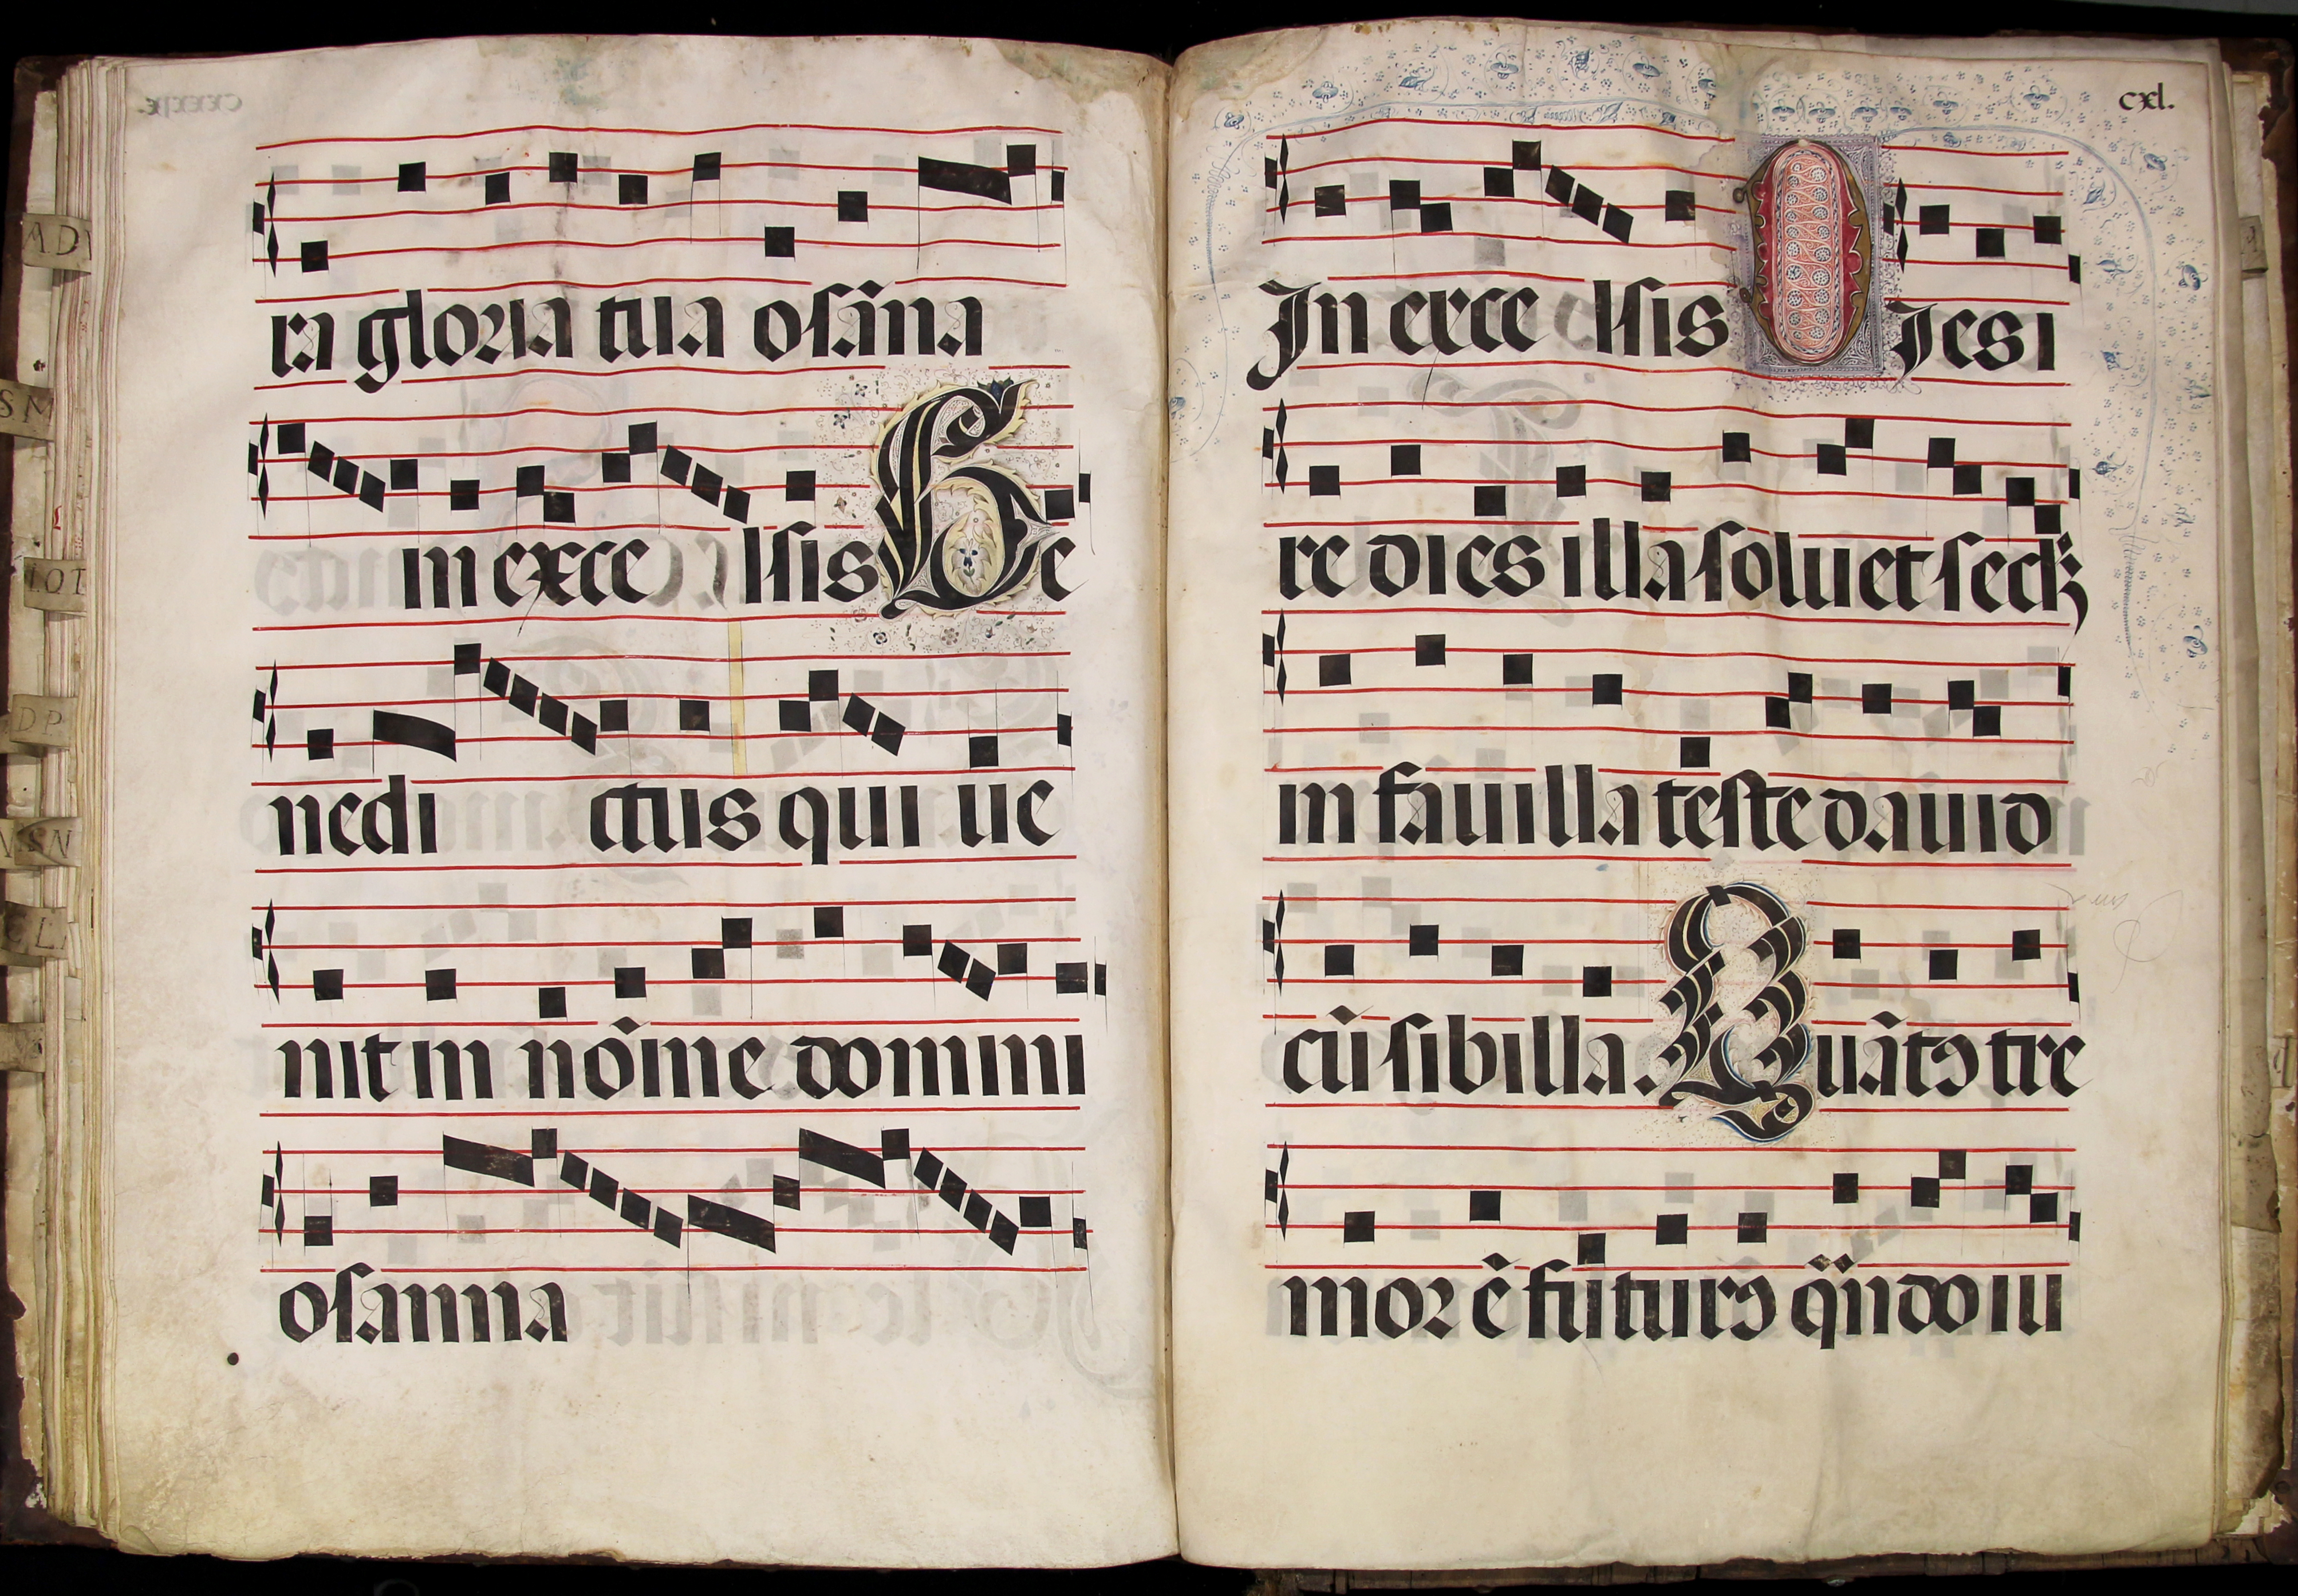 ra gloria tua osāna
in exce lsis Be
nedi ctus qui ue
nit in nōine domini
osanna
cxl.
In exce lsis DIes i
re dies illa soluet seclꝫ
in fauilla teste dauid
cū sibilla. Quātꝰ tre
mor ē futurꝰ qn̄do iu
AD
SM
IOT
DP